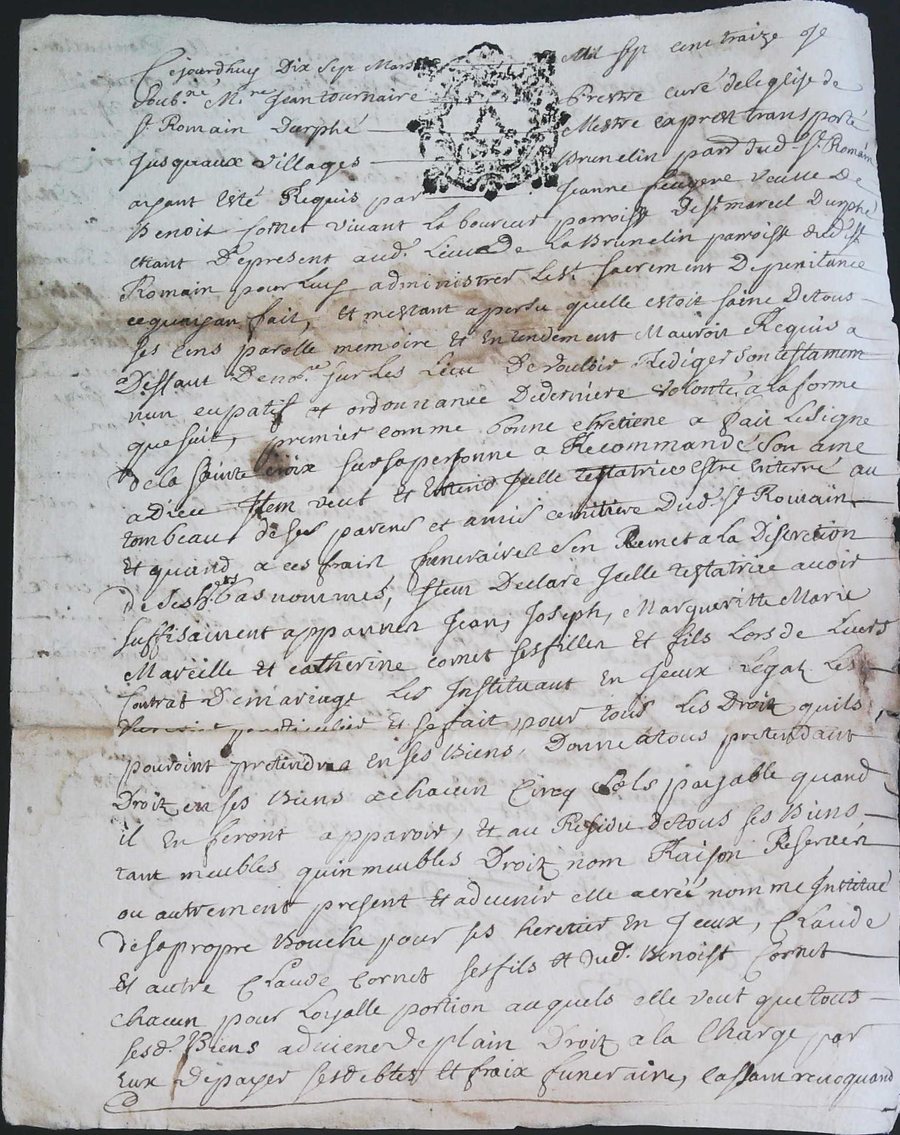 Cejourdhuy Dix Sept Mars Mil sept cent traize Je
soubné Mre Jean tournaire Prestre curé de leglise de
st Romain Durphé Mestre exprest transporté
Jusquaux villages Brunelin parr dud. st Romain
ayant esté Requis par Jeanne veuve De
Benoit Cornet vivant Laboureur parroisse De st marcel Durphé
estant De present aud. Lieu de La Brunelin parroisse dud. st
Romain pour Luy administrer Le st. sacrement De penitance
ce quaÿan fait, et mestant apersu quelle estoit saine De tous
ses sens parolle memoire et Entendement Mauroit Requis a
Deffaut De nore sur Les Lieu De vouloir Rediger son testament
nuncupatif et ordonnance De derniere volonté a la forme
que suit, premier comme bonne chretiene a fait Le signe
de la sainte Croix sur sa personne a Recommandé son ame
a Dieu Item veut et Entend Jcelle testatrice estre enterré au
tombeau de ses parens et amis cemitiere Dud. st Romain
Et quand a ces frais funeraires s'en Remet a la Discretion
de ses hers bas nommés, Item Declare Jcelle testatrice avoir
suffisament appanner Jean, Joseph, Margueritte Marie
Mareille et catherine cornet ses filles et fils Lors de Leurs
Contrat De mariage Les Instituant En Jceux Legat Les
particulier et se fait pour tous Les Droit quils
pouroint pretendre en ses Biens, Donne a tous pretendant
Droit en ses Biens a chacun Cinq sols payable quand
il En feront apparoir, et au Residu de tous ses Biens
tant meubles quinmeubles Droit nom Raison Reserver
ou autrement present et advenir elle a creé nomme Institué
de sa propre Bouche pour ses heretier En Jceux, Claude
et autre Claude Cornet ses fils et dud. Benoist Cornet
chacun pour Loyalle portion auquels elle veut que tous
sesd. Biens adviene De plain Droit a la Charge par
Eux De payer ses debtes et fraix funeraire, cassant revoquand